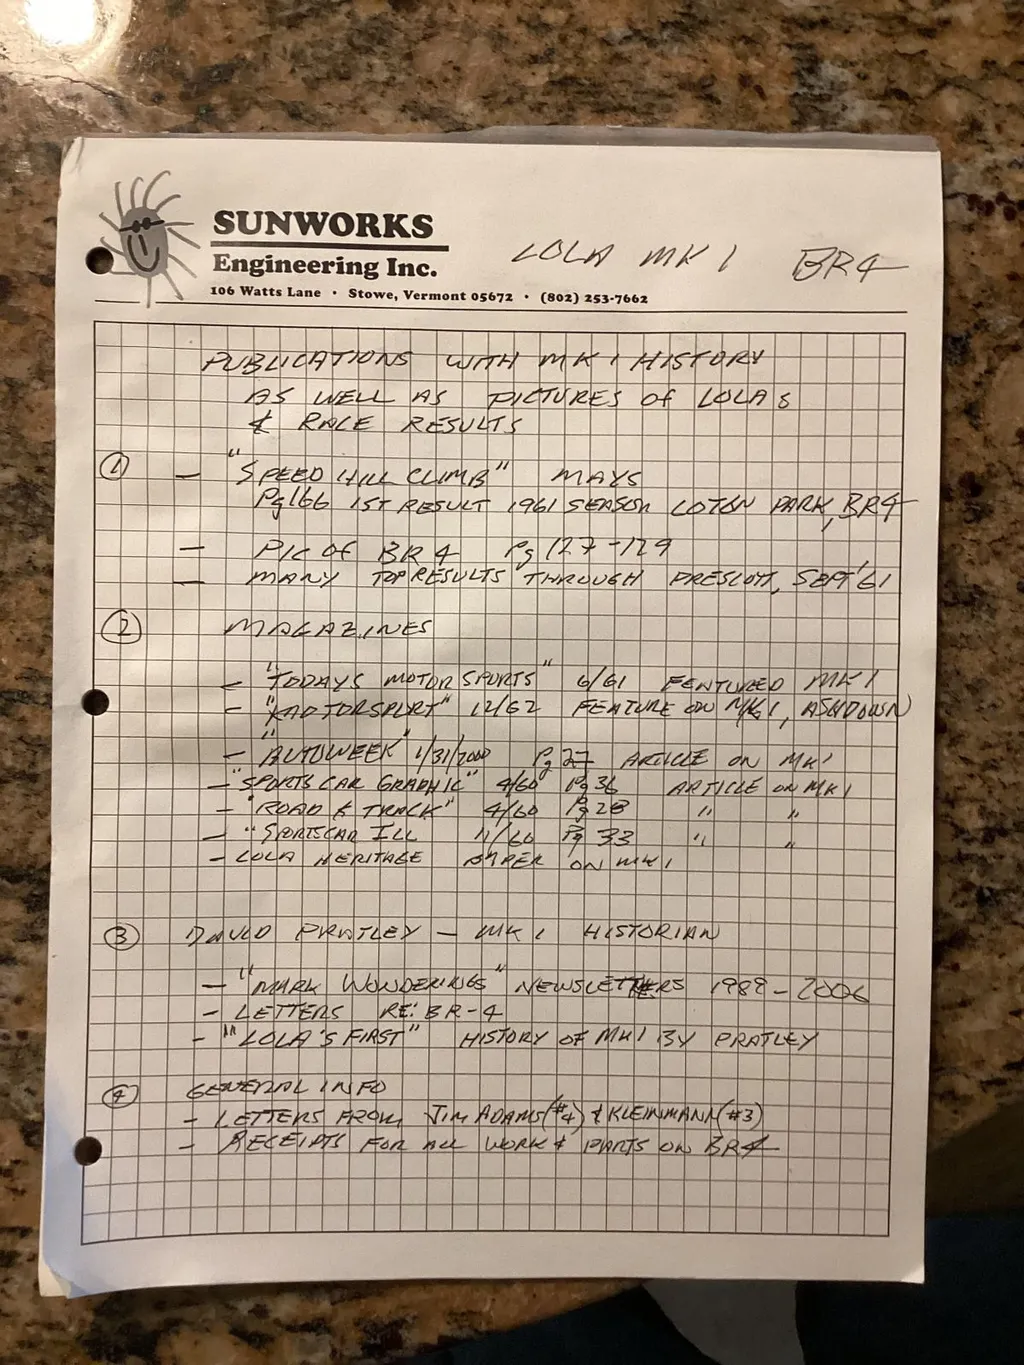 SUNWORKS
Engineering Inc.
106 Watts Lane • Stowe, Vermont 05672 • (802) 253-7662
LOLA MK 1 BR4
PUBLICATIONS WITH MK 1 HISTORY
AS WELL AS PICTURES of LOLAS
& RACE RESULTS
① – "SPEED HILL CLIMB" MAYS
Pg 166 1ST RESULT 1961 SEASON LOTON PARK, BR4
– PIC OF BR4 Pg 127-129
– MANY TOP RESULTS THROUGH PRESCOTT, SEPT '61
② MAGAZINES
– "TODAYS MOTOR SPORTS" 6/61 FEATURED MK 1
– 12/62 FEATURE ON MK1, ASHDOWN
– "AUTOWEEK" 1/31/2000 Pg 27 ARTICLE ON MK1
– "SPORTS CAR GRAPHIC" 4/60 Pg 36 ARTICLE ON MK1
– "ROAD & TRACK" 4/60 Pg 28 " "
– "SPORTSCAR ILL 11/60 Pg 33 " "
– LOLA HERITAGE PAPER ON MK1
③ DAVID PRATLEY – MK 1 HISTORIAN
– "MARK WONDERINGS" NEWSLETTERS 1989 – 2006
– LETTERS RE: BR-4
– "LOLA'S FIRST" HISTORY OF MK1 BY PRATLEY
④ GENERAL INFO
– LETTERS FROM JIM ADAMS (#4) & KLEINMANN (#3)
– RECEIPTS FOR ALL WORK & PARTS ON BR4